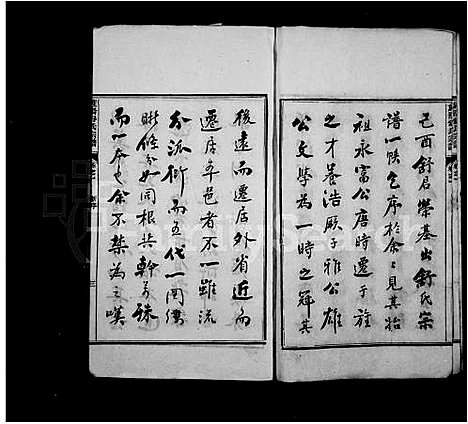 己酉舒君榮基出舒氏宗
譜一帙乞序於余余見其始
祖永富公唐時遷于旌
之才養浩厥子雅公雄
公文學為一時之冠其
後遠而遷居外省近而
遷居卑邑者不一雖流
分派衍而五代一圖條
晰縷分如同根共幹萬殊
而一本也余不禁為之嘆
FamilySearch